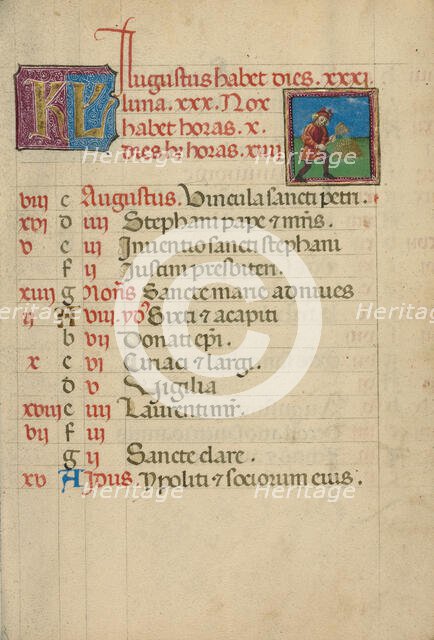 KL Augustus habet dies .xxxi.
luna .xxx. Nox
habet horas .x.
dies hz horas .xiiii
viii c Augustus. Vincula sancti petri.
xvi d iiii Stephani pape & mris.
v e iii Inventio sancti stephani
f ii Justini presbiteri.
xiii g Nons Sancte marie ad nives
ii A viii yds Sixti & acapiti
b vii Donati epi.
x c vi Ciriaci & largi.
d v Vigilia
xviii e iiii Laurentii mr.
vii f iii
g ii Sancte clare.
xv A Idus. Ypoliti & sociorum eius.
Heritage Images
Heritage Images
Heritage Images
Heritage Images
Heritage Images
Heritage Images